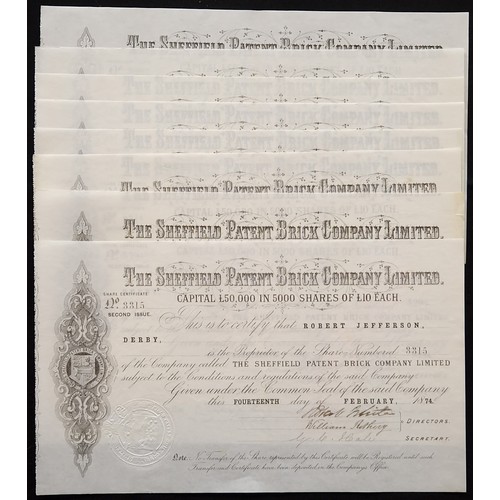 THE SHEFFIELD PATENT BRICK COMPANY LIMITED
THE SHEFFIELD PATENT BRICK COMPANY LIMITED.
THE SHEFFIELD PATENT BRICK COMPANY LIMITED.
THE SHEFFIELD PATENT BRICK COMPANY LIMITED.
SHARE CERTIFICATE
CAPITAL £50,000 IN 5000 SHARES OF £10 EACH.
No. 3315
SECOND ISSUE.
This is to certify that ROBERT JEFFERSON,
DERBY,
is the Proprietor of the Share Numbered 3315
of the Company called THE SHEFFIELD PATENT BRICK COMPANY LIMITED
subject to the Conditions and regulations of the said Company
Given under the Common Seal of the said Company
this FOURTEENTH day of FEBRUARY, 1874.
DIRECTORS
William
SECRETARY.
Note. No Transfer of the Share represented by this Certificate will be Registered until such
Transfer and Certificate have been deposited in the Company's Office.